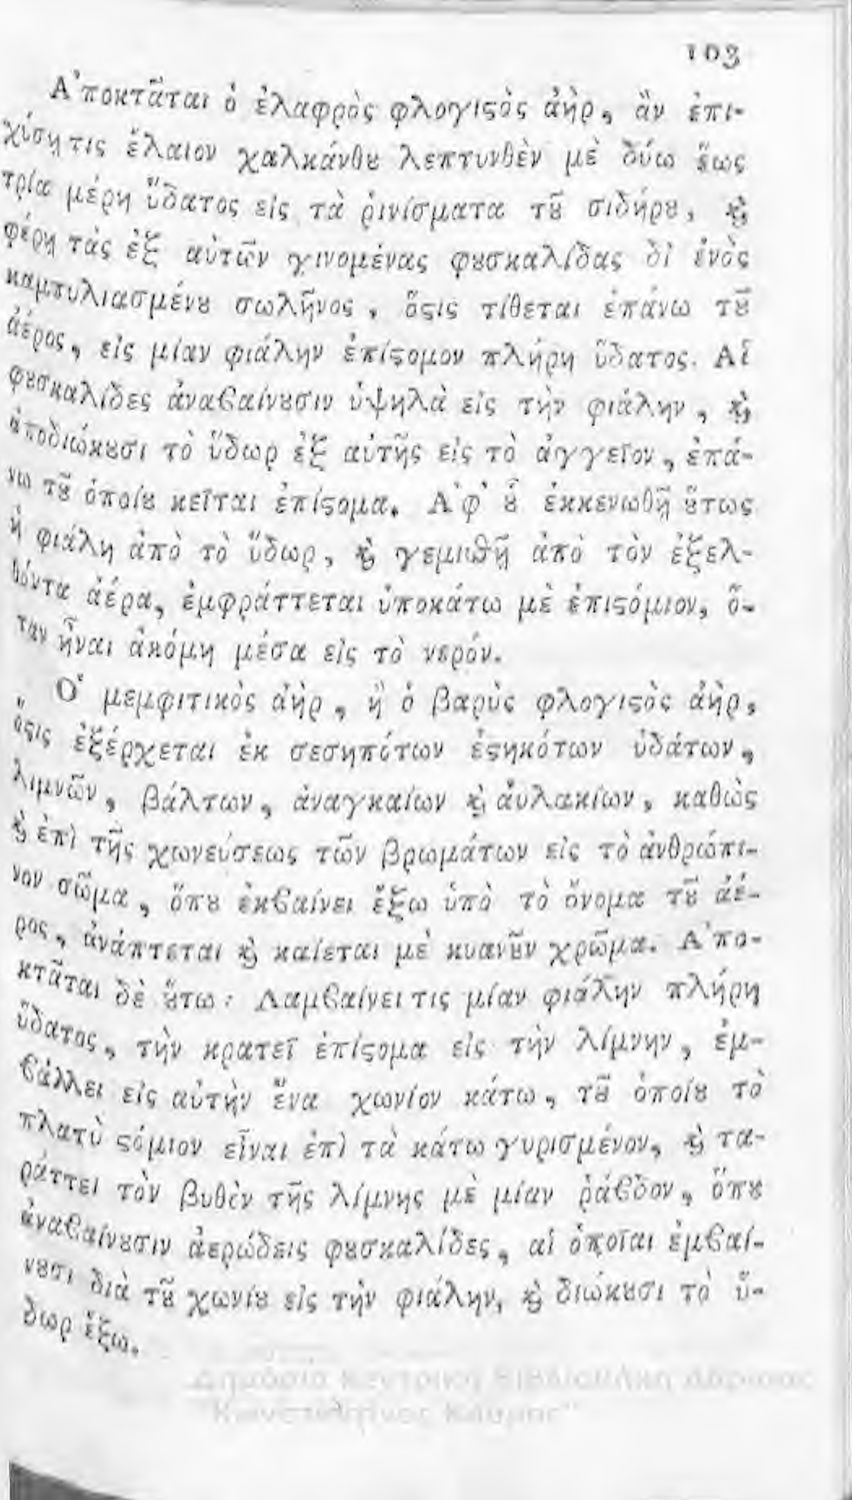 103
Ἀποκτᾶται ὁ ἐλαφρὸς φλογιϛὸς ἀὴρ, ἂν ἐπι-
χύσῃ τις ἔλαιον χαλκάνθȣ λεπτυνθὲν μὲ δύω ἕως
τρία μέρη ὕδατος εἰς τὰ ῥινίσματα τȣ͂ σιδήρȣ, ϗ̀
φέρῃ τὰς ἐξ αὐτῶν γινομένας φȣσκαλίδας δι' ἑνὸς
καμπυλιασμένȣ σωλῆνος, ὅϛις τίθεται ἐπάνω τȣ͂
ἀέρος, εἰς μίαν φιάλην ἐπίϛομον πλήρη ὕδατος. Αἱ
φȣσκαλίδες ἀναβαίνȣσιν ὑψηλὰ εἰς τὴν φιάλην, ϗ̀
ἀποδιώκȣσι τὸ ὕδωρ ἐξ αὐτῆς εἰς τὸ ἀγγεῖον, ἐπά-
νω τȣ͂ ὁποίȣ κεῖται ἐπίϛομα. Ἀφ' ȣ̔͂ ἐκκενωθῇ ȣ̔́τως
ἡ φιάλη ἀπὸ τὸ ὕδωρ, ϗ̀ γεμισθῇ ἀπὸ τὸν ἐξελ-
θόντα ἀέρα, ἐμφράττεται ὑποκάτω μὲ ἐπιϛόμιον, ὅ-
ταν ἦναι ἀκόμη μέσα εἰς τὸ νερόν.
Ὁ μεμφιτικὸς ἀὴρ, ἢ ὁ βαρὺς φλογιϛὸς ἀὴρ,
ὅϛις ἐξέρχεται ἐκ σεσηπότων ἑϛηκότων ὑδάτων,
λιμνῶν, βάλτων, ἀναγκαίων ϗ̀ ἀυλακίων, καθὼς
ϗ̀ ἐπὶ τῆς χωνεύσεως τῶν βρωμάτων εἰς τὸ ἀνθρώπι-
νον σῶμα, ὅπȣ ἐκβαίνει ἔξω ὑπὸ τὸ ὄνομα τȣ͂ ἀέ-
ρος, ἀνάπτεται ϗ̀ καίεται μὲ κυανȣ͂ν χρῶμα. Ἀπο-
κτᾶται δὲ ȣ̔́τω: Λαμβαίνει τις μίαν φιάλην πλήρη
ὕδατος, τὴν κρατεῖ ἐπίϛομα εἰς τὴν λίμνην, ἐμ-
βάλλει εἰς αὐτὴν ἕνα χωνίον κάτω, τȣ͂ ὁποίȣ τὸ
πλατὺ ϛόμιον εἶναι ἐπὶ τὰ κάτω γυρισμένον, ϗ̀ τα-
ράττει τὸν βυθὸν τῆς λίμνης μὲ μίαν ῥάβδον, ὅπȣ
ἀναβαίνȣσιν ἀερώδεις φȣσκαλίδες, αἱ ὁποῖαι ἐμβαί-
νȣσι διὰ τȣ͂ χωνίȣ εἰς τὴν φιάλην, ϗ̀ διώκȣσι τὸ ὕ-
δωρ ἔξω.
Δημόσια Κεντρική Βιβλιοθήκη Λάρισας
"Κωνσταντίνος Κούμας"